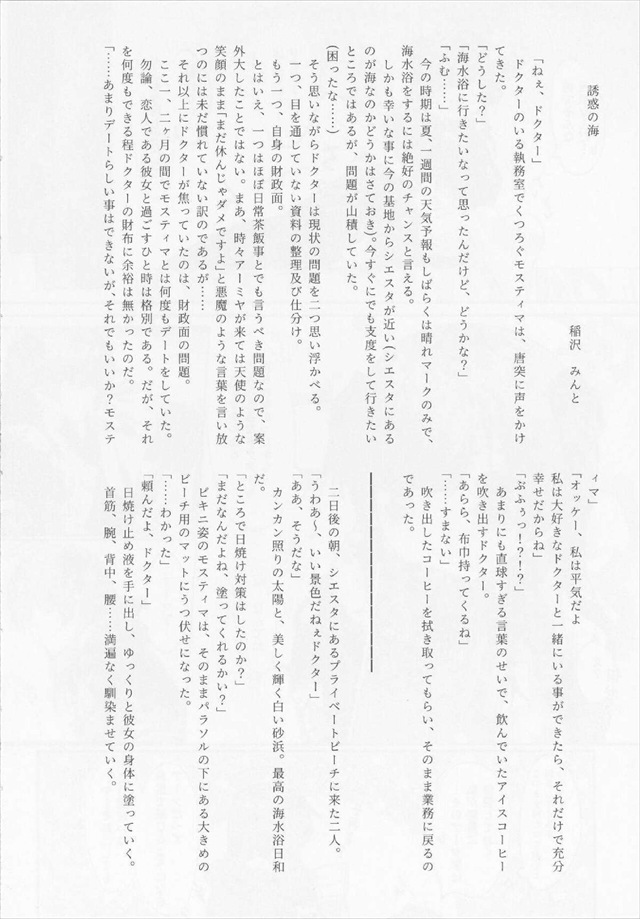 誘惑の海
稲沢 みんと
「ねぇ、ドクター」
ドクターのいる執務室でくつろぐモスティマは、唐突に声をかけ
てきた。
「どうした?」
「海水浴に行きたいなって思ったんだけど、どうかな?」
「ふむ……」
今の時期は夏、一週間の天気予報もしばらくは晴れマークのみで、
海水浴をするには絶好のチャンスと言える。
しかも幸いな事に今の基地からシエスタが近い(シエスタにある
のが海なのかどうかはさておき)。今すぐにでも支度をして行きたい
ところではあるが、問題が山積していた。
(困ったな……)
そう思いながらドクターは現状の問題を二つ思い浮かべる。
一つ、目を通していない資料の整理及び仕分け。
もう一つ、自身の財政面。
とはいえ、一つはほぼ日常茶飯事とでも言うべき問題なので、案
外大したことではない。まあ、時々アーミヤが来ては天使のような
笑顔のまま「まだ休んじゃダメですよ」と悪魔のような言葉を言い放
つのには未だ慣れていない訳のであるが……
それ以上にドクターが焦っていたのは、財政面の問題。
ここ一、二ヶ月の間でモスティマとは何度もデートをしていた。
勿論、恋人である彼女と過ごすひと時は格別である。だが、それ
を何度もできる程ドクターの財布に余裕は無かったのだ。
「……あまりデートらしい事はできないが、それでもいいか?モステ
ィマ」
「オッケー、私は平気だよ
私は大好きなドクターと一緒にいる事ができたら、それだけで充分
幸せだからね」
「ぶふぅっ!?!?」
あまりにも直球すぎる言葉のせいで、飲んでいたアイスコーヒー
を吹き出すドクター。
「あらら、布巾持ってくるね」
「……すまない」
吹き出したコーヒーを拭き取ってもらい、そのまま業務に戻るの
であった。
二日後の朝、シエスタにあるプライベートビーチに来た二人。
「うわあ〜、いい景色だねぇドクター」
「ああ、そうだな」
カンカン照りの太陽と、美しく輝く白い砂浜。最高の海水浴日和
だ。
「ところで日焼け対策はしたのか?」
「まだなんだよね、塗ってくれるかい?」
ビキニ姿のモスティマは、そのままパラソルの下にある大きめの
ビーチ用のマットにうつ伏せになった。
「……わかった」
「頼んだよ、ドクター」
日焼け止め液を手に出し、ゆっくりと彼女の身体に塗っていく。
首筋、腕、背中、腰……満遍なく馴染ませていく。